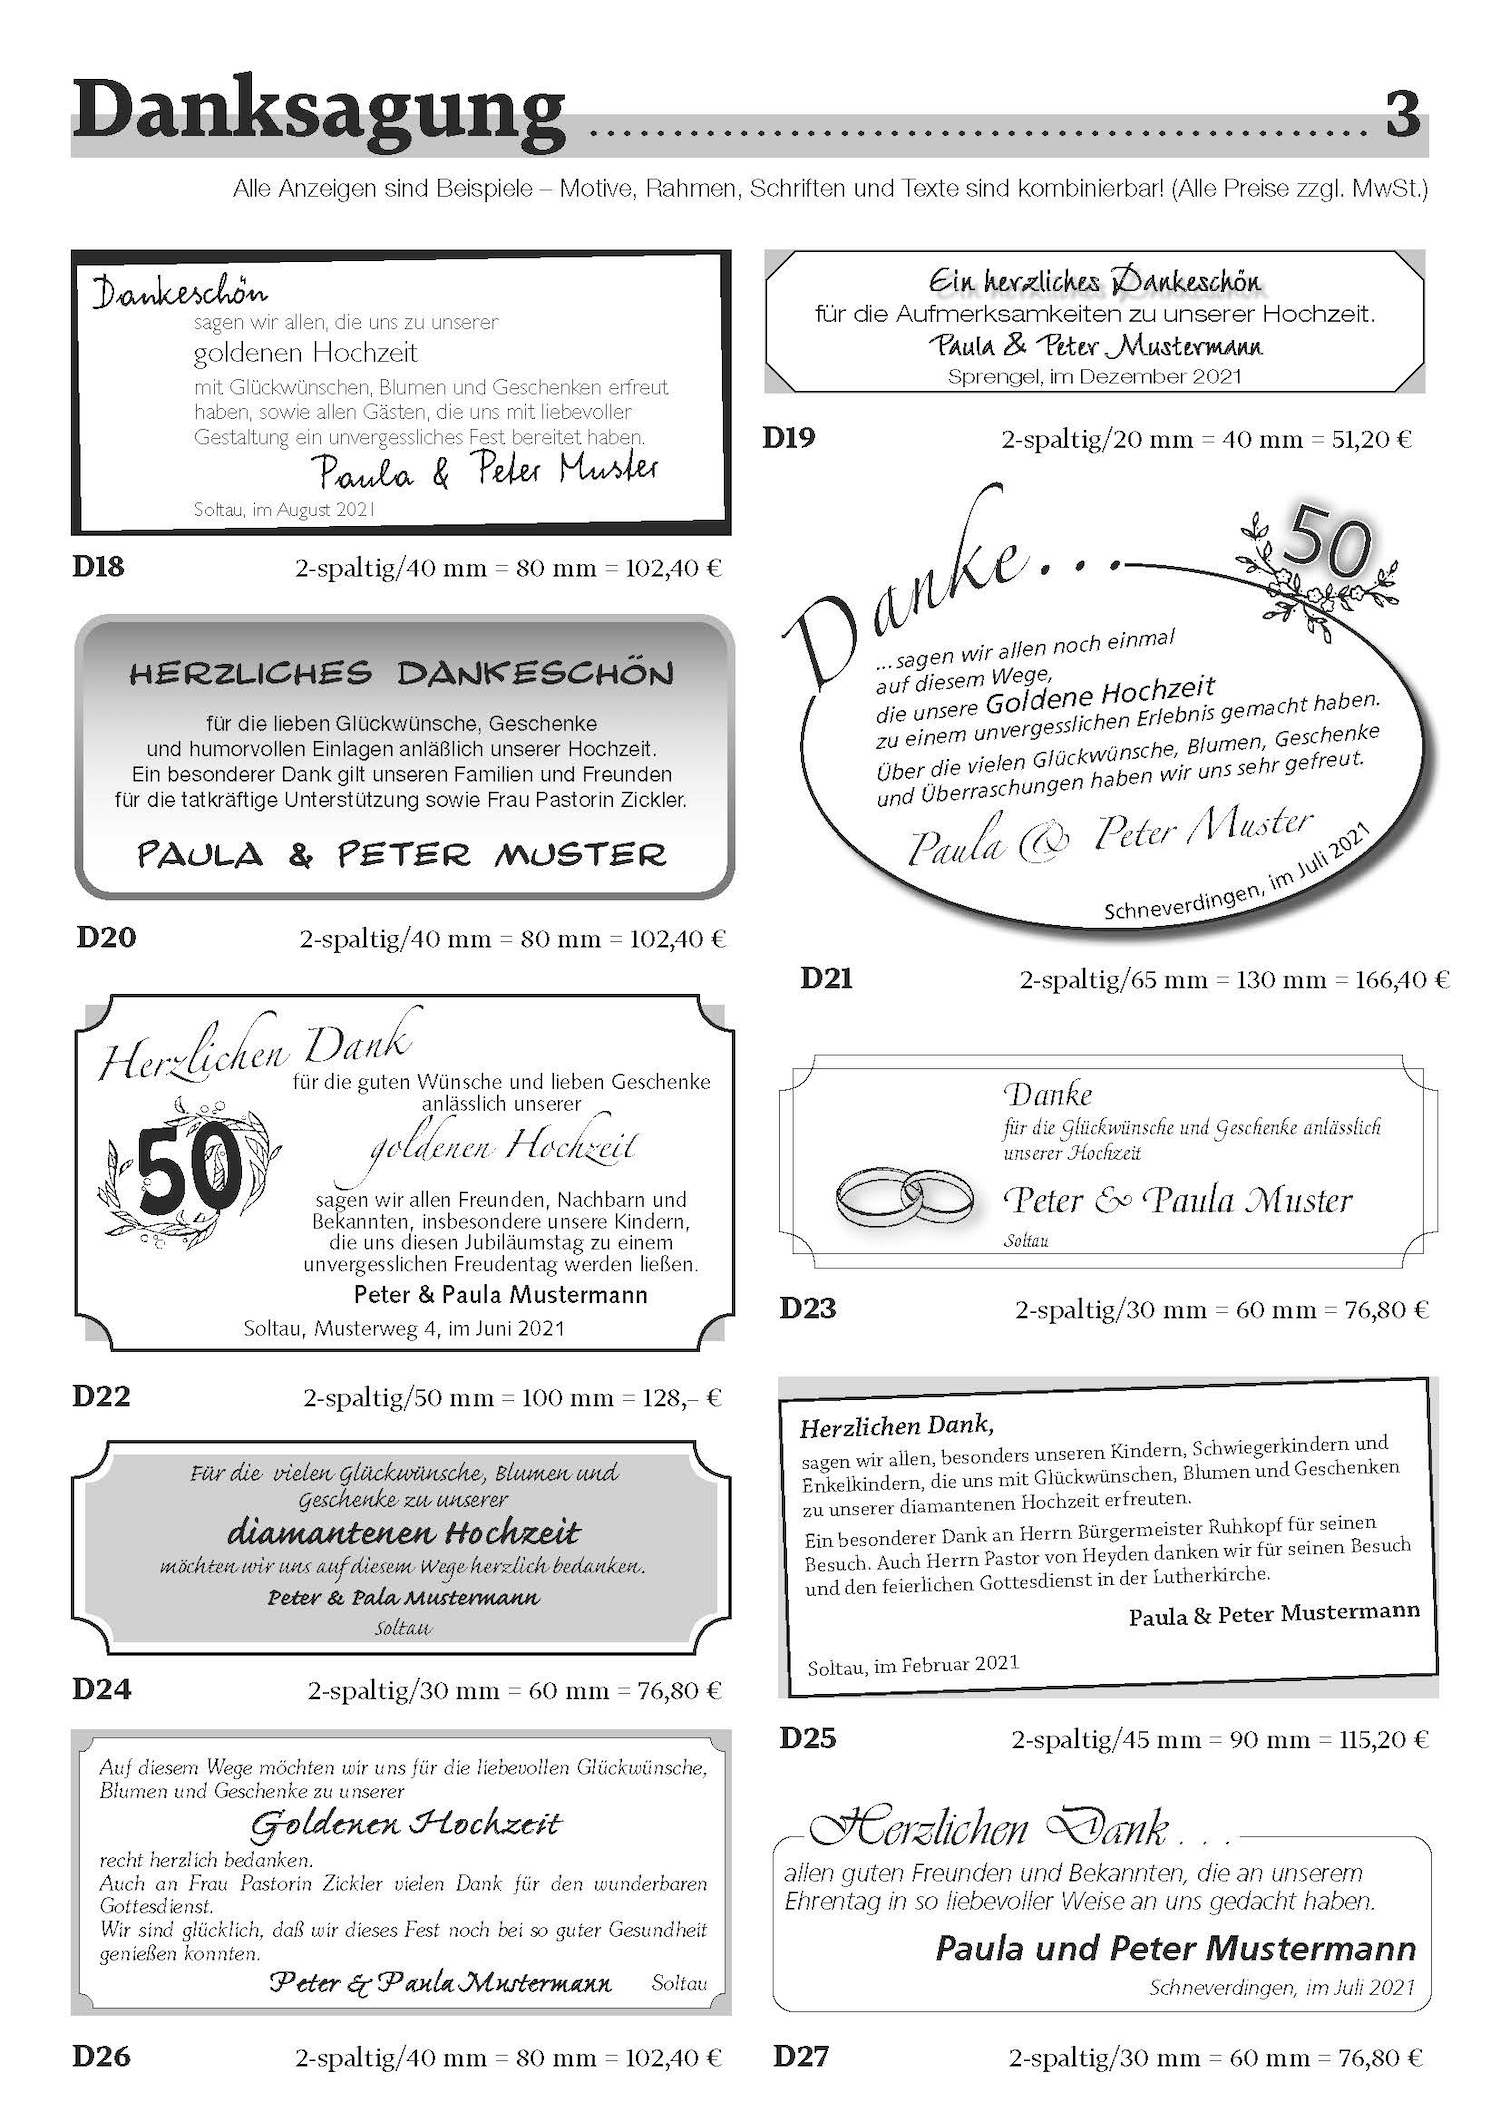 Danksagung ................................................ 3
Alle Anzeigen sind Beispiele – Motive, Rahmen, Schriften und Texte sind kombinierbar! (Alle Preise zzgl. MwSt.)
Dankeschön
sagen wir allen, die uns zu unserer
goldenen Hochzeit
mit Glückwünschen, Blumen und Geschenken erfreut
haben, sowie allen Gästen, die uns mit liebevoller
Gestaltung ein unvergessliches Fest bereitet haben.
Paula & Peter Muster
Soltau, im August 2021
D18 2-spaltig/40 mm = 80 mm = 102,40 €
Ein herzliches Dankeschön
für die Aufmerksamkeiten zu unserer Hochzeit.
Paula & Peter Mustermann
Sprengel, im Dezember 2021
D19 2-spaltig/20 mm = 40 mm = 51,20 €
HERZLICHES DANKESCHÖN
für die lieben Glückwünsche, Geschenke
und humorvollen Einlagen anläßlich unserer Hochzeit.
Ein besonderer Dank gilt unseren Familien und Freunden
für die tatkräftige Unterstützung sowie Frau Pastorin Zickler.
PAULA & PETER MUSTER
D20 2-spaltig/40 mm = 80 mm = 102,40 €
Danke...
50
...sagen wir allen noch einmal
auf diesem Wege,
die unsere Goldene Hochzeit
zu einem unvergesslichen Erlebnis gemacht haben.
Über die vielen Glückwünsche, Blumen, Geschenke
und Überraschungen haben wir uns sehr gefreut.
Paula & Peter Muster
Schneverdingen, im Juli 2021
D21 2-spaltig/65 mm = 130 mm = 166,40 €
Herzlichen Dank
für die guten Wünsche und lieben Geschenke
anlässlich unserer
goldenen Hochzeit
50
sagen wir allen Freunden, Nachbarn und
Bekannten, insbesondere unsere Kindern,
die uns diesen Jubiläumstag zu einem
unvergesslichen Freudentag werden ließen.
Peter & Paula Mustermann
Soltau, Musterweg 4, im Juni 2021
D22 2-spaltig/50 mm = 100 mm = 128,– €
Danke
für die Glückwünsche und Geschenke anlässlich
unserer Hochzeit
Peter & Paula Muster
Soltau
D23 2-spaltig/30 mm = 60 mm = 76,80 €
Für die vielen Glückwünsche, Blumen und
Geschenke zu unserer
diamantenen Hochzeit
möchten wir uns auf diesem Wege herzlich bedanken.
Peter & Pala Mustermann
Soltau
D24 2-spaltig/30 mm = 60 mm = 76,80 €
Herzlichen Dank,
sagen wir allen, besonders unseren Kindern, Schwiegerkindern und
Enkelkindern, die uns mit Glückwünschen, Blumen und Geschenken
zu unserer diamantenen Hochzeit erfreuten.
Ein besonderer Dank an Herrn Bürgermeister Ruhkopf für seinen
Besuch. Auch Herrn Pastor von Heyden danken wir für seinen Besuch
und den feierlichen Gottesdienst in der Lutherkirche.
Paula & Peter Mustermann
Soltau, im Februar 2021
D25 2-spaltig/45 mm = 90 mm = 115,20 €
Auf diesem Wege möchten wir uns für die liebevollen Glückwünsche,
Blumen und Geschenke zu unserer
Goldenen Hochzeit
recht herzlich bedanken.
Auch an Frau Pastorin Zickler vielen Dank für den wunderbaren
Gottesdienst.
Wir sind glücklich, daß wir dieses Fest noch bei so guter Gesundheit
genießen konnten.
Peter & Paula Mustermann Soltau
D26 2-spaltig/40 mm = 80 mm = 102,40 €
Herzlichen Dank . . .
allen guten Freunden und Bekannten, die an unserem
Ehrentag in so liebevoller Weise an uns gedacht haben.
Paula und Peter Mustermann
Schneverdingen, im Juli 2021
D27 2-spaltig/30 mm = 60 mm = 76,80 €